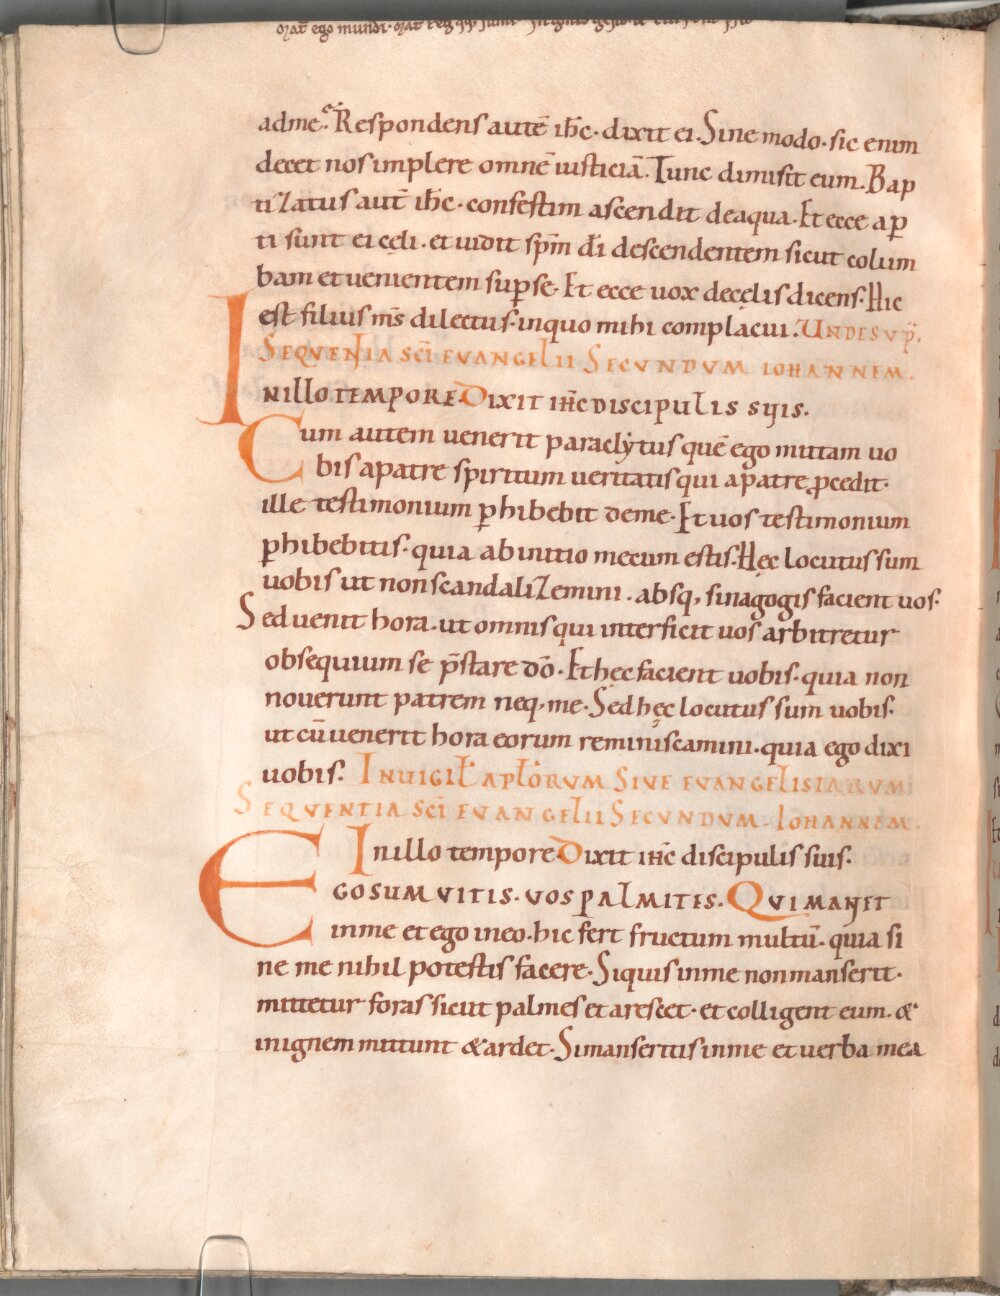 orat ego mundi · orat
adme? Respondens autē ih̄c · dixit ei. Sine modo · sic enim
decet nos implere omnē iusticiā. Tunc dimisit eum. Bap
tiZatus aut̄ ih̄c · confestim ascendit deaqua. Et ecce ap̲
ti sunt ei cęli · et uidit sp̄m d̄i descendentem sicut colum
bam et uenientem sup̲ se. Et ecce uox decęlis dicens. Hic
est filius m̄s dilectus · inquo mihi complacui. UNDE SUP̲.
SEQVENTIA SC̄I EVANGELII SECVNDVM IOHANNEM.
INILLO TEMPORE. DIXIT IH̄C DISCIPULIS SUIS.
Cum autem uenerit paraclẏtus quē ego mittam uo
bis apatre spiritum ueritatis qui apatre ꝓcedit ·
ille testimonium ꝑhibebit deme. Et uos testimonium
ꝑhibebitis · quia abinitio mecum estis. Hęc locutus sum
uobis ut non scandaliZemini · absq; sinagogis facient uos.
Sed uenit hora · ut omnis qui interficit uos arbitretur
obsequium se p̄stare dō. Et hęc facient uobis · quia non
nouerunt patrem neq; me. Sed hęc locutus sum uobis ·
ut cū uenerit hora eorum reminiscamini · quia ego dixi
uobis. INUIGIL̄ AP̄LORVM SIVE EVANGELISTARVM
SEQVENTIA SC̄I EVANGELII SECVNDVM · IOHANNEM.
Inillo tempore Dixit ih̄c discipulis suis.
EGO SUM VITIS · VOS PALMITES. QVI MANET
inme et ego ineo · hic fert fructum multū · quia si
ne me nihil potestis facere. Siquis inme non manserit ·
mittetur foras sicut palmes et arescet · et colligent eum · &
inignem mittunt & ardet. Si manseritis inme et uerba mea